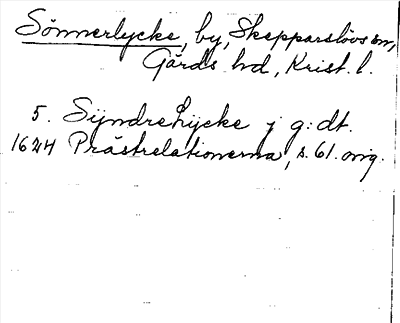 Sönnerlycke, by, Skepparslövs sn,
Gärds hd, Krist. l.
5. Syndre Lycke j g: dt.
1624 Prästrelationerna, s. 61. orig.